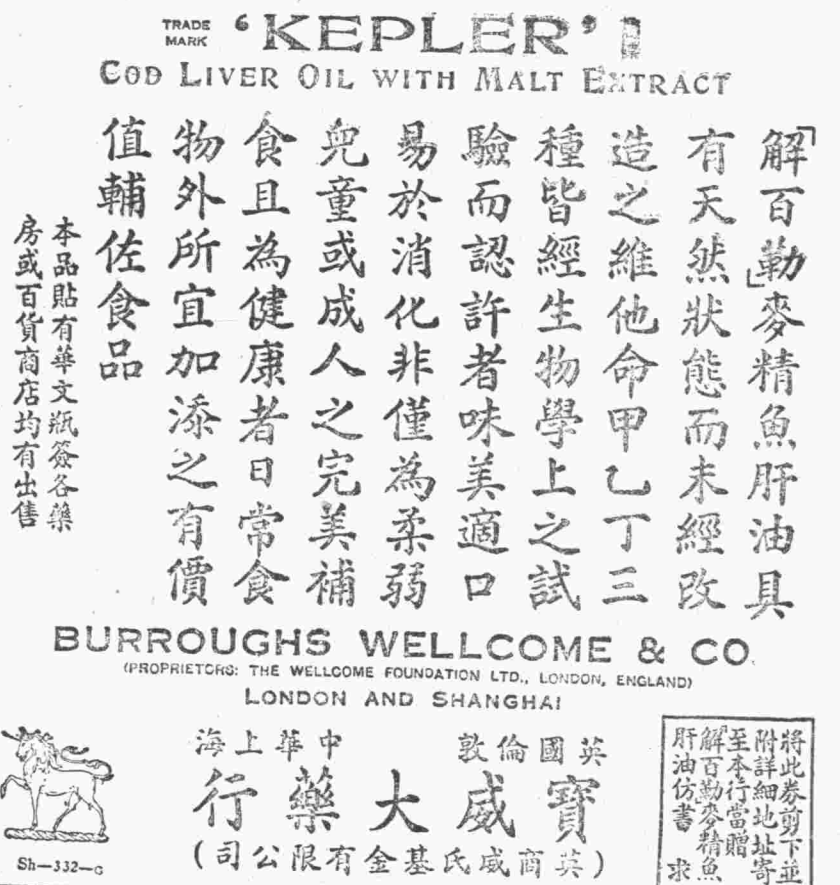 TRADE MARK 'KEPLER'
COD LIVER OIL WITH MALT EXTRACT
「解百勒」麥精魚肝油具
有天然狀態而未經改
造之維他命甲乙丁三
種皆經生物學上之試
驗而認許者味美適口
易於消化非僅為柔弱
兒童或成人之完美補
食且為健康者日常食
物外所宜加添之有價
值輔佐食品
本品貼有華文瓶簽各藥
房或百貨商店均有出售
BURROUGHS WELLCOME & CO.
(PROPRIETORS: THE WELLCOME FOUNDATION LTD., LONDON, ENGLAND)
LONDON AND SHANGHAI
英國倫敦 中華上海
寶威大藥行
(英商威氏基金有限公司)
Sh—332—c
將此券剪下並
附詳細地址寄
至本行當贈
「解百勒」麥精魚
肝油仿書 求